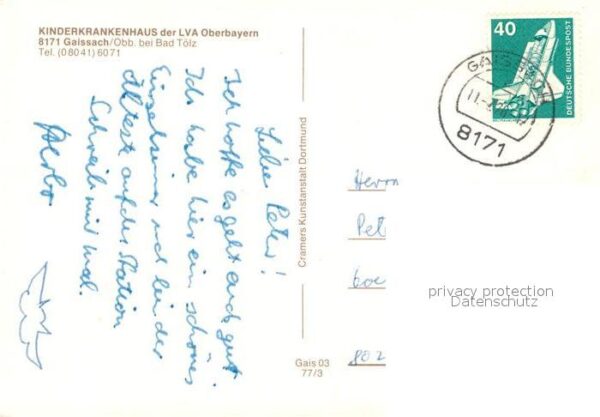 KINDERKRANKENHAUS der LVA Oberbayern
8171 Gaissach/Obb. bei Bad Tölz
Tel. (08041) 6071
Lieber Peter!
Ich hoffe es geht auch gut
Ich habe hier ein schönes
Einzelzimmer und bin der
Älteste auf der Station
Schreib mir mal.
Cramers Kunstanstalt Dortmund
Gais 03
77/3
40
DEUTSCHE BUNDESPOST
GAISSACH
11.
8171
Herrn
Pet
802
privacy protection
Datenschutz